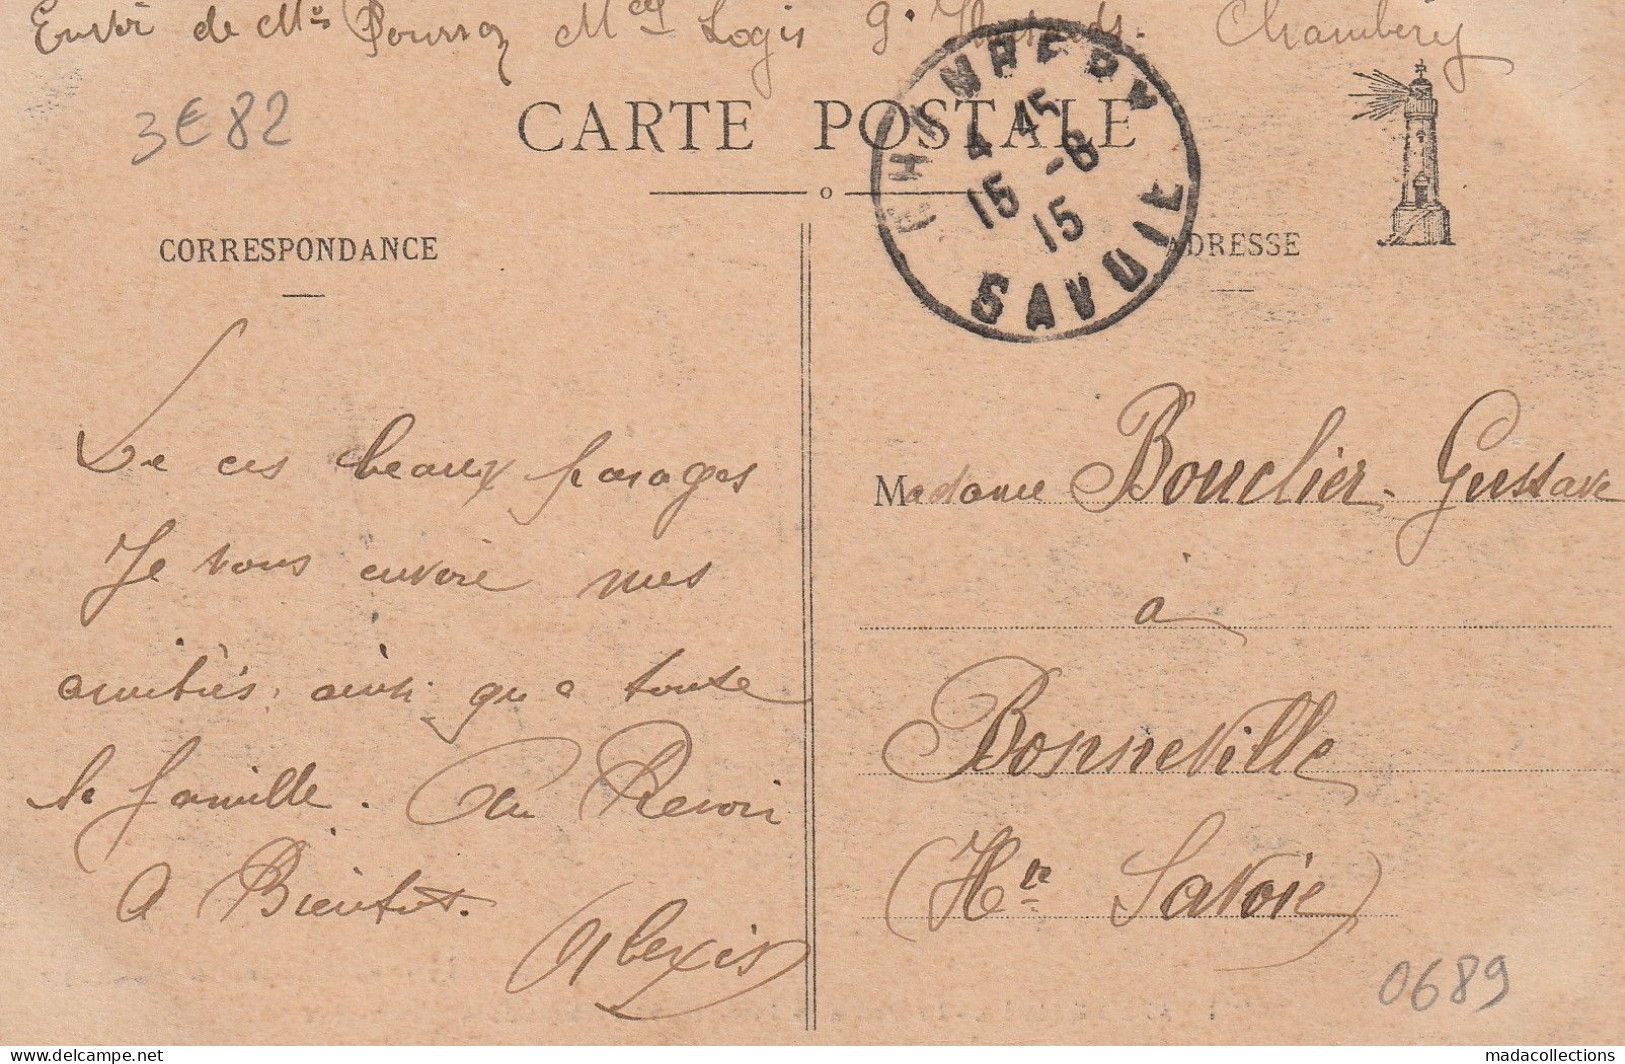 Envoi de Mr Pourroz Mal Logis 9e Hussards. Chambéry
3€82
CARTE POSTALE
CHAMBERY
4 45
15 -8
15
SAVOIE
CORRESPONDANCE
ADRESSE
De ces beaux parages
Je vous envoie mes
amitiés, ainsi qu'a toute
la famille. Au Revoir
A Bientot.
Alexis
Madame Bouclier Gustave
à
Bonneville
(Hte Savoie)
0689
www.delcampe.net
madacollections